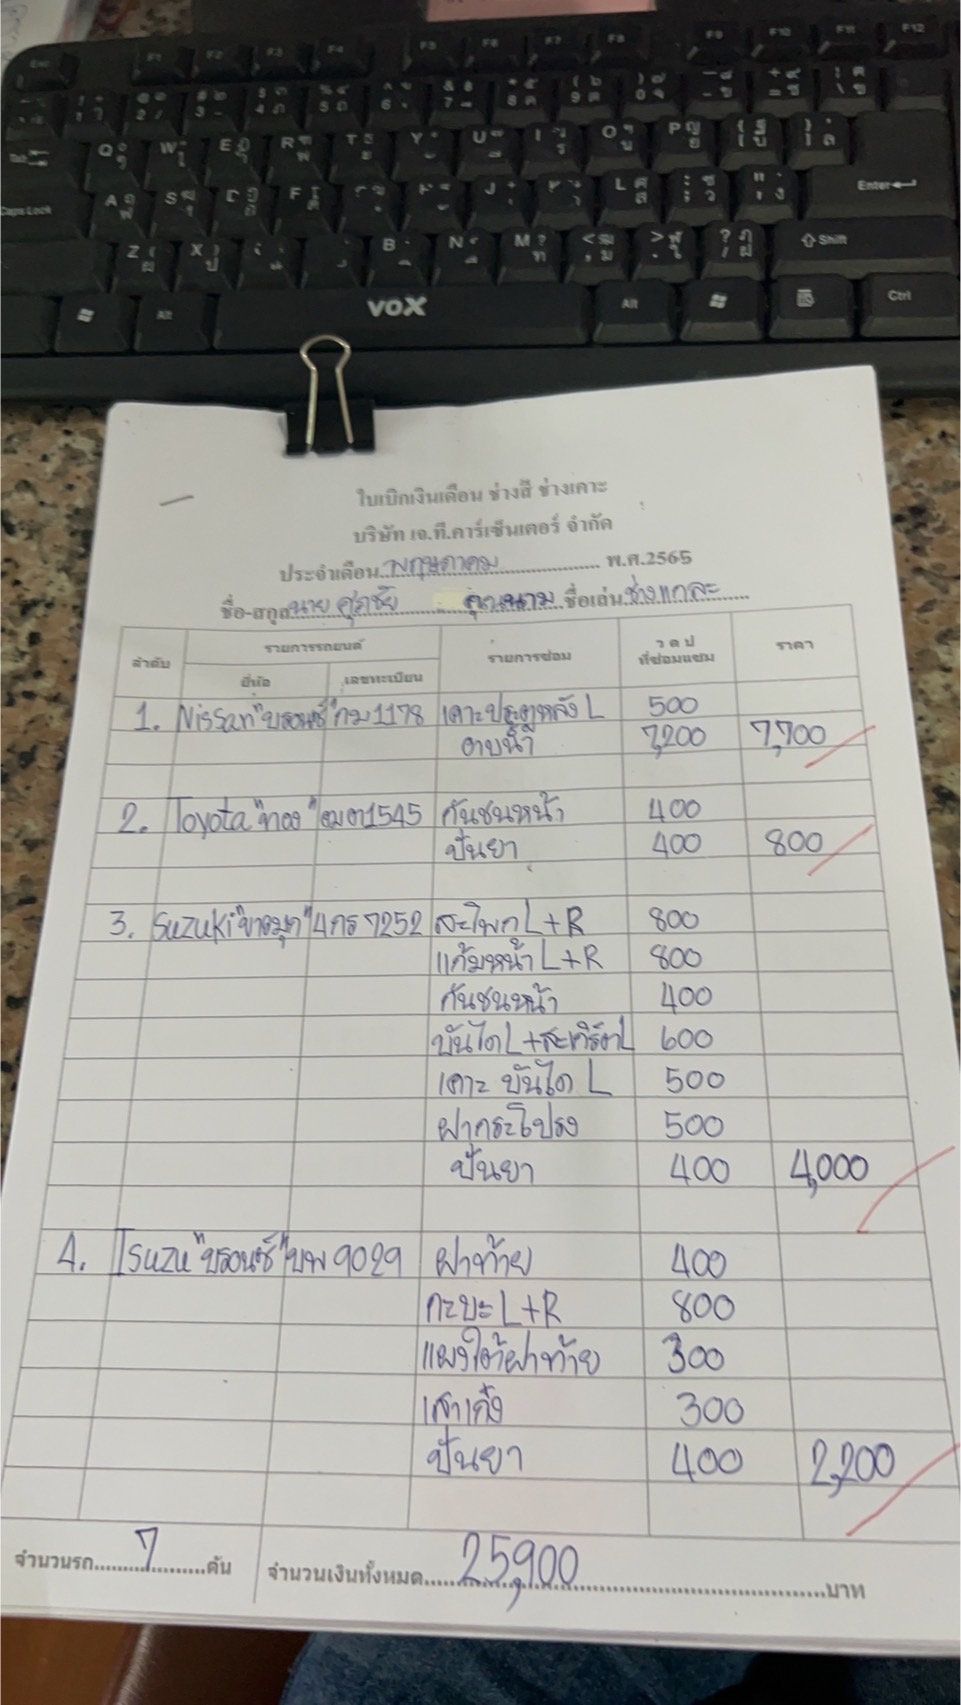 vox
ใบเบิกเงินเดือน ช่างสี ช่างเคาะ
บริษัท เจ.ที.คาร์เซ็นเตอร์ จำกัด
ประจำเดือน พฤษภาคม พ.ศ.2565
ชื่อ-สกุล นาย ศุภชัย ชื่อเล่น ช่างแกละ
ลำดับ รายการรถยนต์ รายการซ่อม ว ด ป ที่ซ่อมแซม ราคา
ยี่ห้อ เลขทะเบียน
1. Nissan "บรอนซ์" กม 1178 เคาะประตูหลัง L 500
อาบน้ำ 7,200 7,700
2. Toyota "ทอง" 1545 กันชนหน้า 400
ปั่นยา 400 800
3. Suzuki "ขาวมุก" 4กร 7252 สะโพก L+R 800
แก้มหน้า L+R 800
กันชนหน้า 400
บันได L+สะเกิร์ต L 600
เคาะ บันได L 500
ฝากระโปรง 500
ปั่นยา 400 4,000
4. Isuzu "บรอนซ์" บพ 9029 ฝาท้าย 400
กะบะ L+R 800
แผงใต้ฝาท้าย 300
เสาเก๋ง 300
ปั่นยา 400 2,200
จำนวนรถ 7 คัน จำนวนเงินทั้งหมด 25,900 บาท